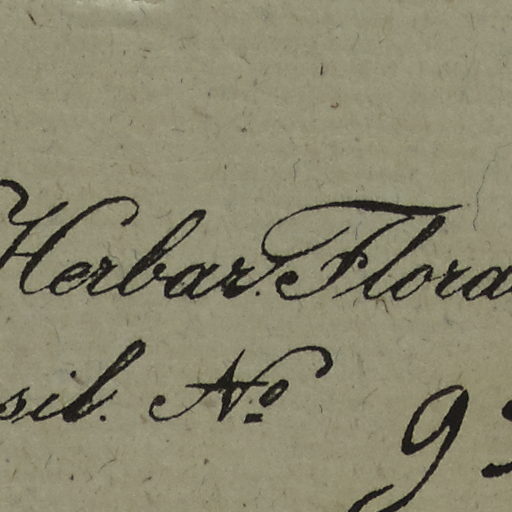 Herbar. Flora
sil. Nº 9